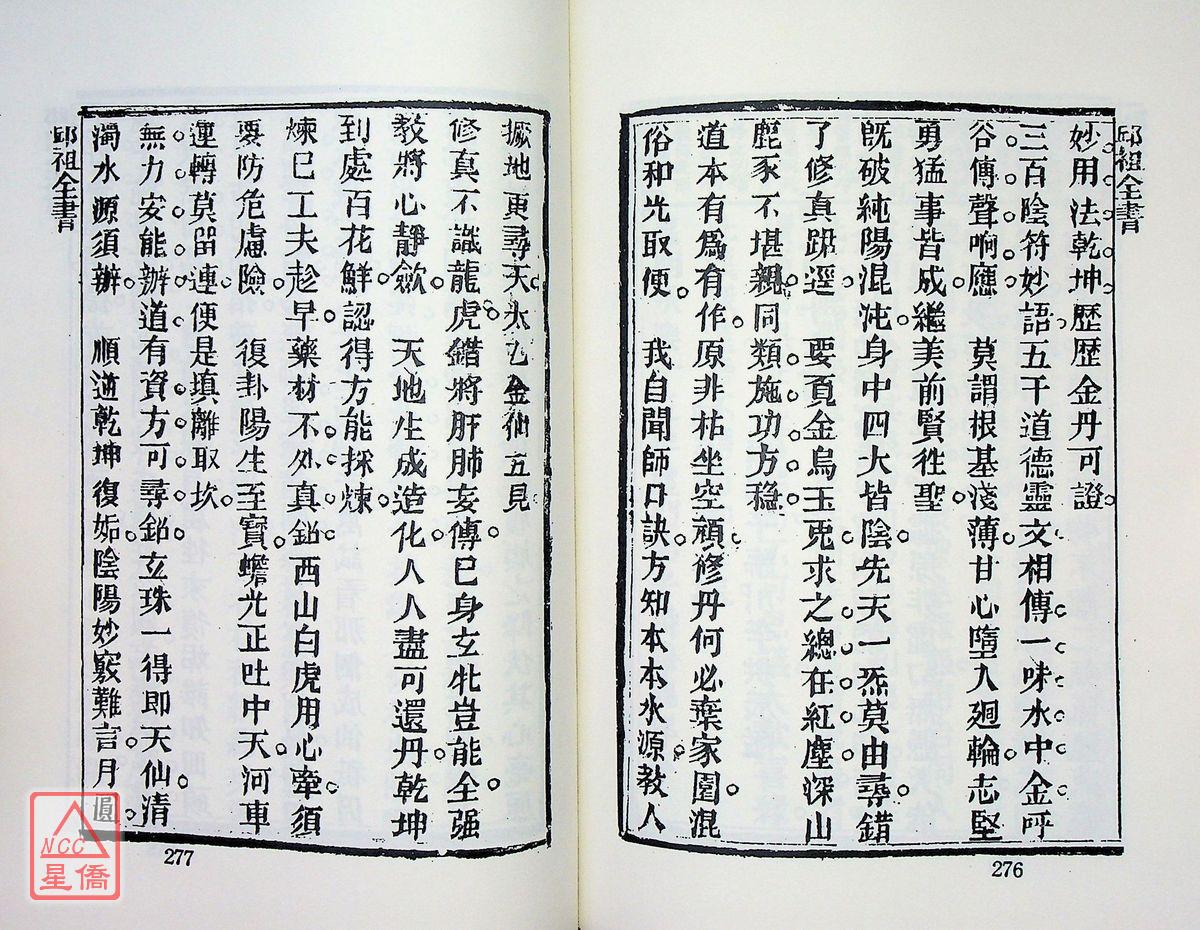 邱祖全書
妙用法乾坤歷歷金丹可證
三百陰符妙語五千道德靈文相傳一味水中金呼
谷傳聲响應　莫謂根基淺薄甘心墮入廻輪志堅
勇猛事皆成繼美前賢徃聖
旣破純陽混沌身中四大皆陰先天一炁莫由尋錯
了修真路逕　要覓金烏玉兎求之總在紅塵深山
鹿豕不堪親同類施功方穩
道本有爲有作原非枯坐空頑修丹何必棄家園混
俗和光取便　我自聞師口訣方知本本水源敎人
276
撅地更尋天太乙金仙五見
修真不識龍虎錯將肝肺妄傳已身玄牝豈能全强
敎將心靜歛　天地生成造化人人盡可還丹乾坤
到處百花鮮認得方能採煉
煉已工夫趁早藥材不外真鉛西山白虎用心牽須
要防危慮險　復卦陽生至寶蟾光正吐中天河車
運轉莫留連便是填離取坎
無力安能辦道有資方可尋鉛玄珠一得卽天仙清
濁水源須辦　順逆乾坤復姤陰陽妙竅難言月圓
邱祖全書
277
NCC
星僑